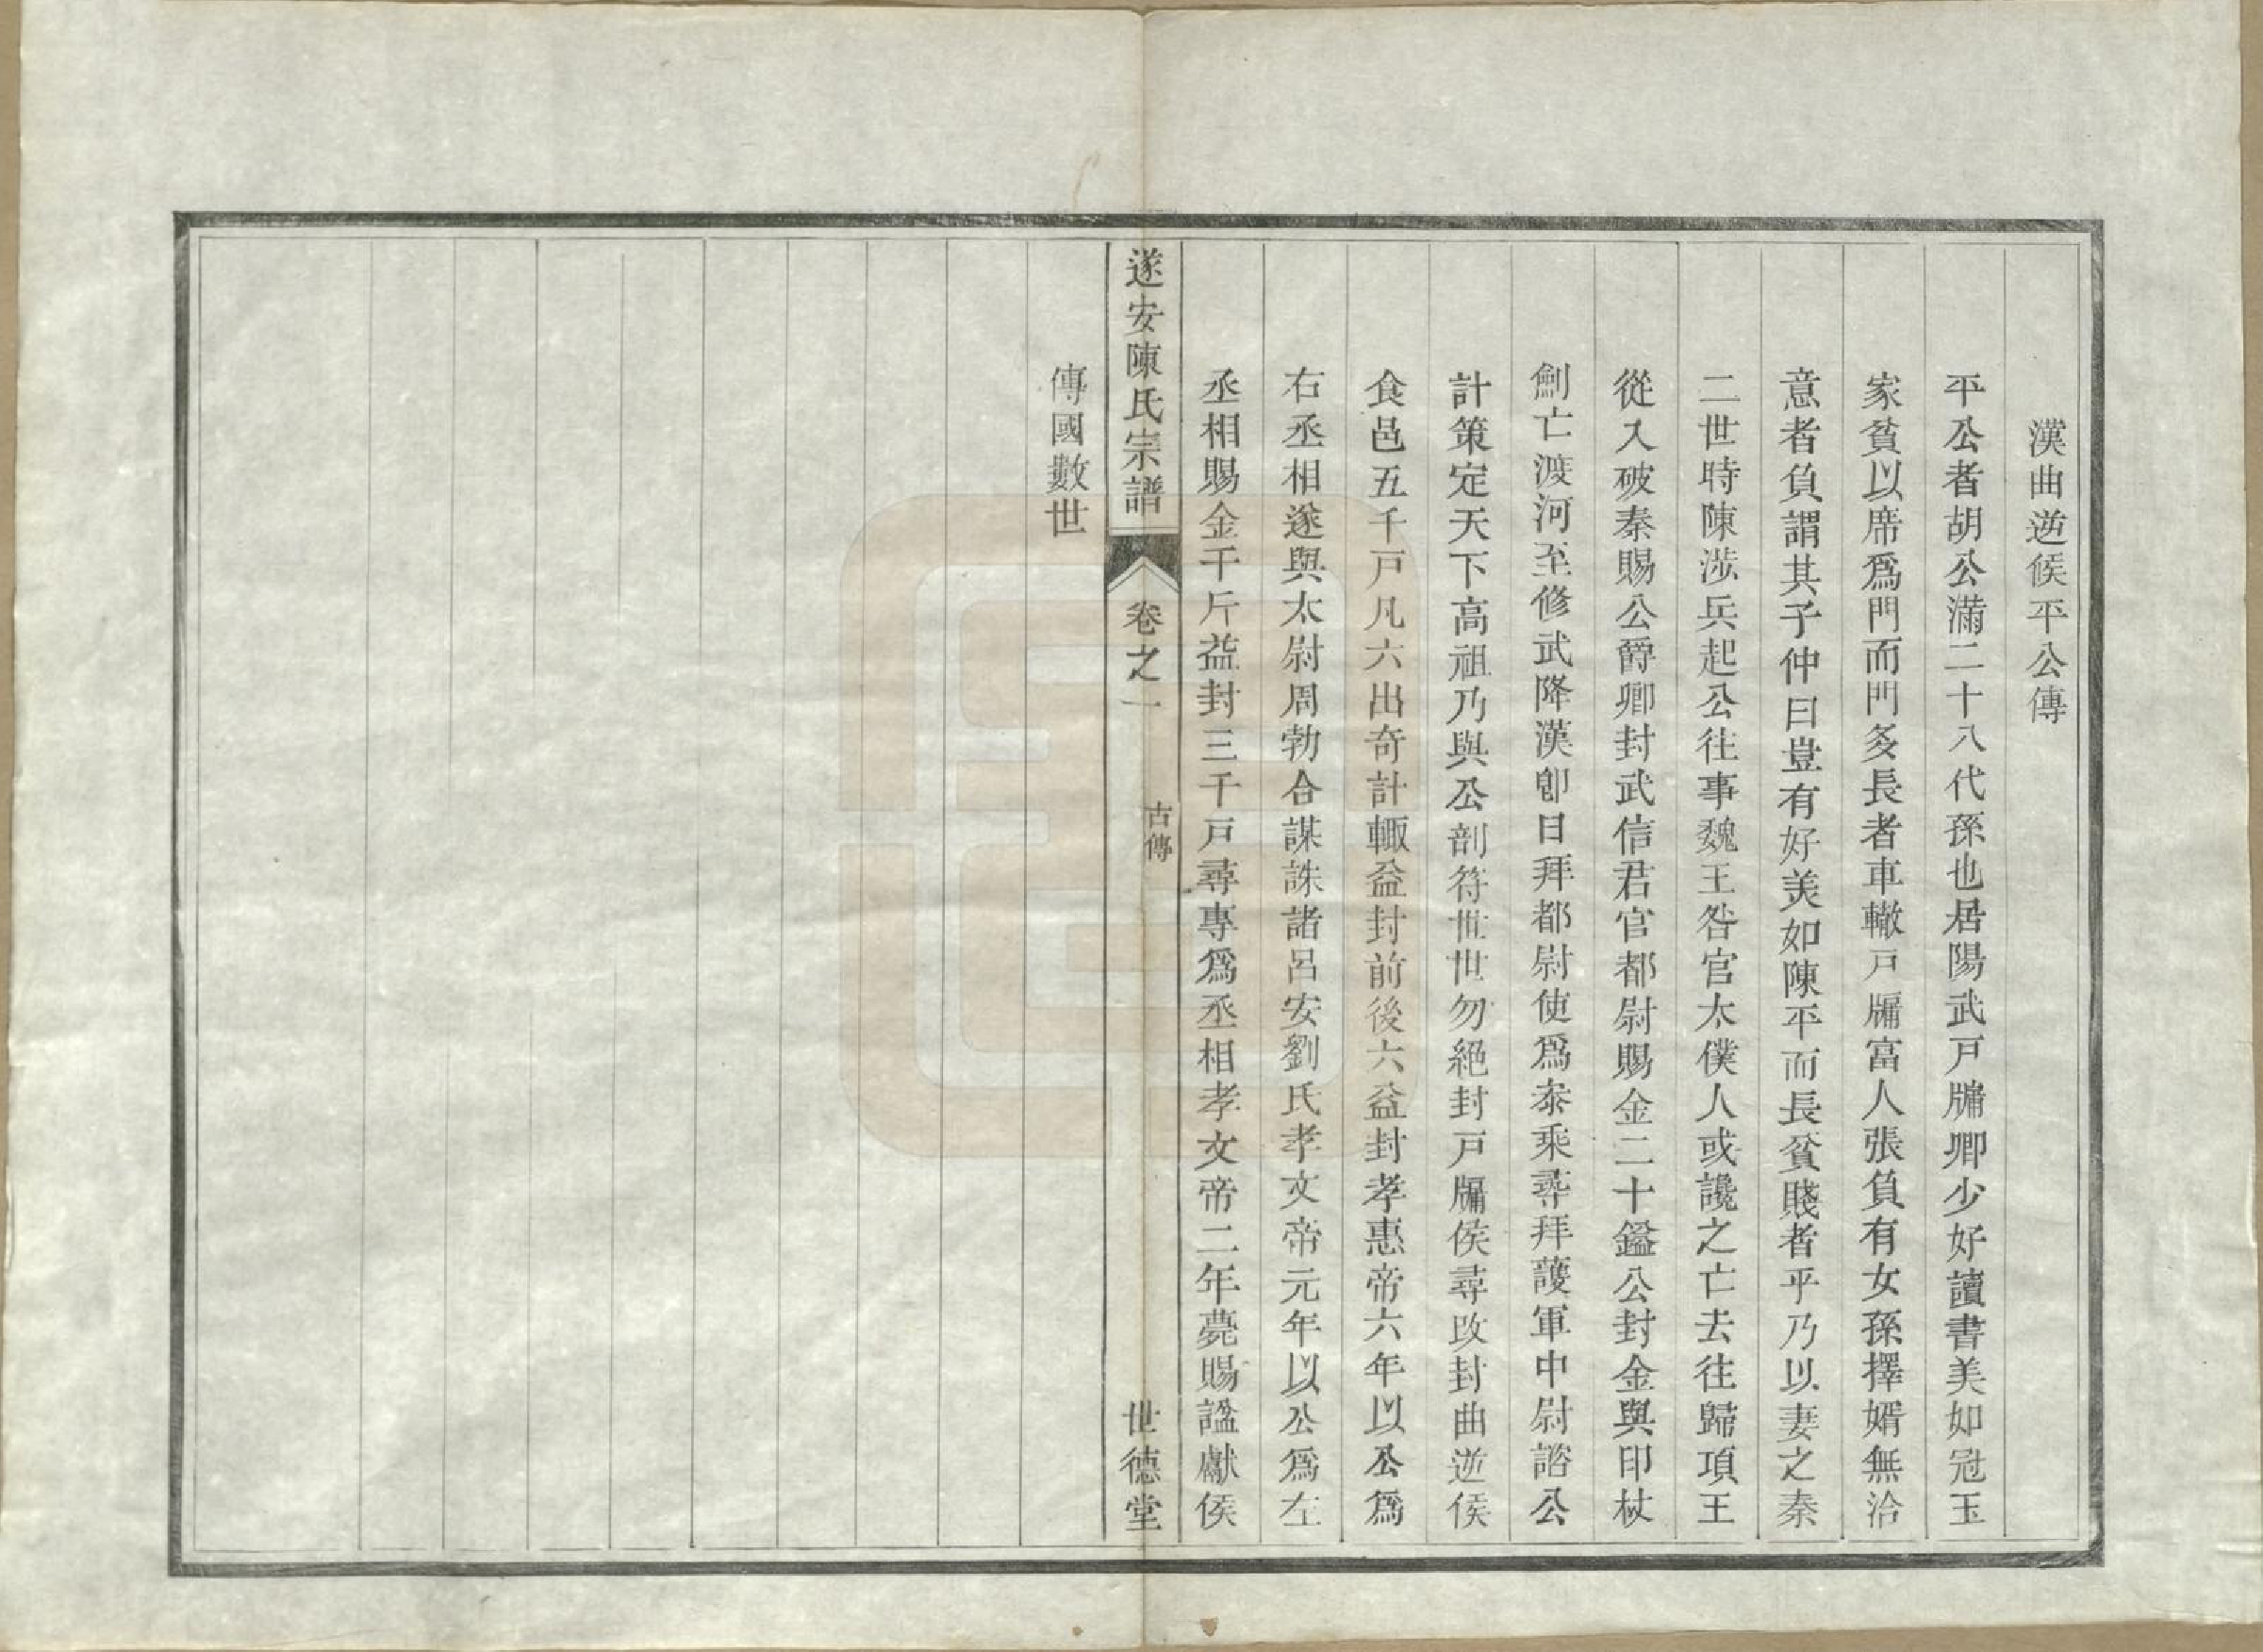 漢曲逆侯平公傳
平公者胡公滿二十八代孫也居陽武戸牖鄉少好讀書美如冠玉
家貧以席爲門而門多長者車轍戸牖富人張負有女孫擇婿無洽
意者負謂其子仲曰豈有好美如陳平而長貧賤者乎乃以妻之秦
二世時陳涉兵起公往事魏王咎官太僕人或讒之亡去往歸項王
從入破秦賜公爵卿封武信君官都尉賜金二十鎰公封金與印杖
劍亡渡河至修武降漢卽日拜都尉使爲叅乘尋拜護軍中尉諮公
計策定天下高祖乃與公剖符世世勿絕封戸牖侯尋改封曲逆侯
食邑五千戸凡六出奇計輒益封前後六益封孝惠帝六年以公爲
右丞相遂與太尉周勃合謀誅諸呂安劉氏孝文帝元年以公爲左
丞相賜金千斤益封三千戸尋專爲丞相孝文帝二年薨賜諡獻侯
遂安陳氏宗譜 卷之一 古傳 世德堂
傳國數世